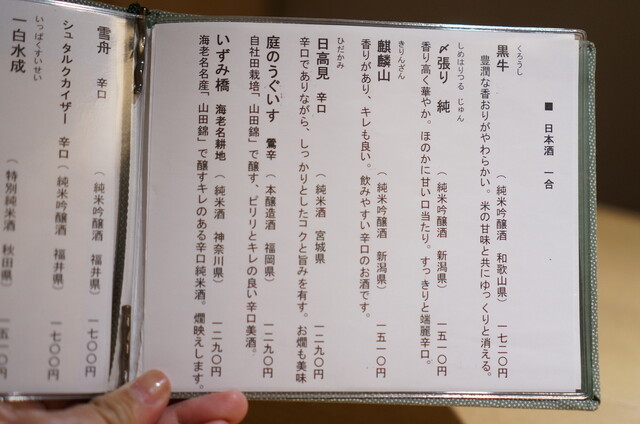 ■ 日本酒 一合
くろうし
黒牛 （純米吟醸酒 和歌山県） 一七二〇円
豊潤な香おりがやわらかい。米の甘味と共にゆっくりと消える。
しめはりつる じゅん
〆張り 純 （純米吟醸酒 新潟県） 一五一〇円
香り高く華やか。ほのかに甘い口当たり。すっきりと端麗辛口。
きりんざん
麒麟山 （純米吟醸酒 新潟県） 一五一〇円
香りがあり、キレも良い。飲みやすい辛口のお酒です。
ひだかみ
日高見 辛口 （純米酒 宮城県） 一二九〇円
辛口でありながら、しっかりとしたコクと旨みを有す。お燗も美味
庭のうぐいす 鶯辛 （本醸造酒 福岡県） 一二九〇円
自社田栽培「山田錦」で醸す、ピリリとキレの良い辛口美酒。
いずみ橋 海老名耕地 （純米酒 神奈川県） 一二九〇円
海老名名産「山田錦」で醸すキレのある辛口純米酒。燗映えします。
雪舟 辛口 （純米吟醸酒 福井県） 一七〇〇円
シュタルクカイザー 辛口 （純米吟醸酒 福井県） 一七〇〇円
いっぱくすいせい
一白水成 （特別純米酒 秋田県） 一五一〇円